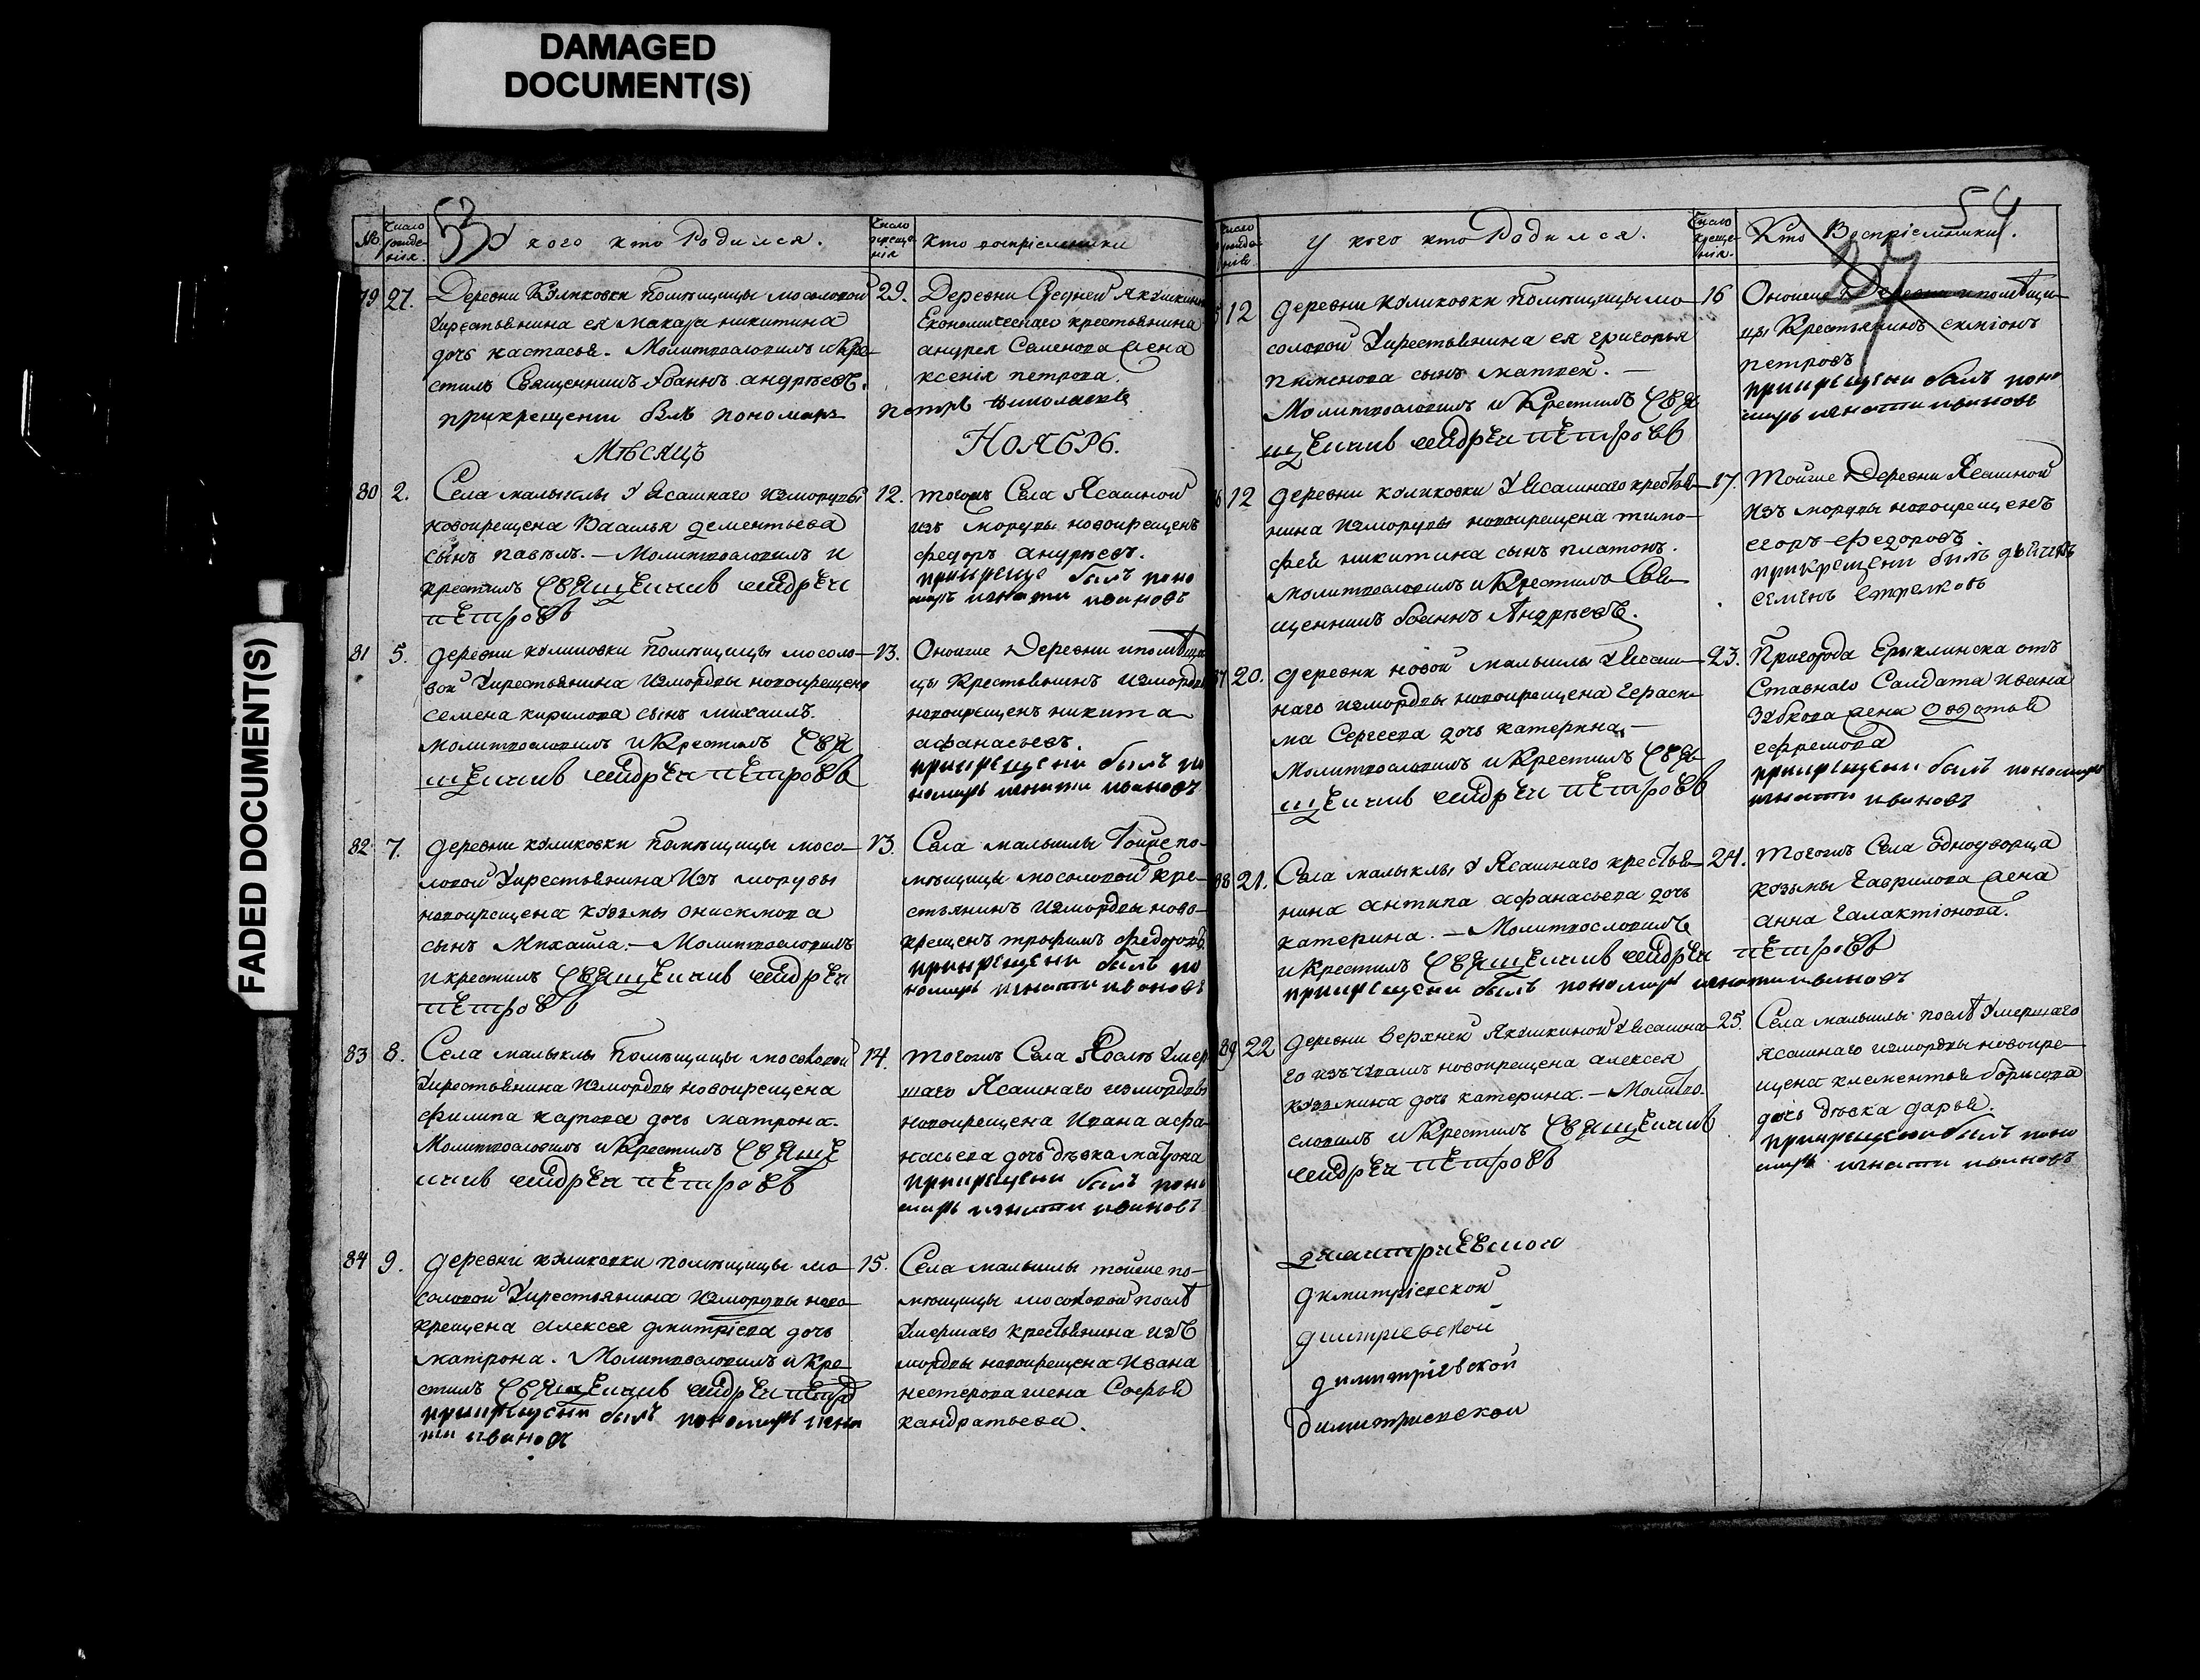 DAMAGED
DOCUMENT(S)
FADED DOCUMENT(S)
53
№
Число рожде-нія.
У кого кто Родился.
Число креще-нія
Кто воспріемники
79 27.
Деревни Куликовки помѣщицы мосоловой
Укрестьянина ея макара никитина
дочь настасья. Молитвословилъ и Кре-
стилъ Священникъ Иоаннъ андрѣевъ.
прикрещении былъ пономарь
29.
Деревни Средней Якушкиной
Економическаго крестьянина
андрея Семенова жена
ксенія петрова.
петръ николаевъ
Мѣсяцъ
НОЯБРЬ.
80 2.
Села малыклы У Ясашнаго измордвы
новокрещена Василья дементьева
сынъ павелъ. — Молитвословилъ и
крестилъ священникъ андреи
петровъ
12.
тогожъ Села Ясашной
изъ мордвы новокрещенъ
федоръ андрѣевъ.
прикреще былъ поно
марь игнати ивановъ
81 5.
деревни куликовки помѣщицы мосоло-
вой Укрестьянина измордвы новокрещена
семена кирилова сынъ михаилъ.
молитвословилъ и Крестилъ свя
щенникъ андреи петровъ
13.
Оноиже Деревни ипомѣщи
цы Крестьянинъ измордвы
новокрещенъ никита
афанасьевъ.
прикрещени былъ по
номарь игнати ивановъ
82 7.
деревни куликовки помѣщицы мосо-
ловой Укрестьянина Изъ мордвы
новокрещена козмы онисимова
сынъ Михайла. — Молитвословилъ
и крестилъ священникъ андреи
петровъ
13.
Села малыклы Тоиже по-
мѣщицы мосоловой Кре-
стьянинъ измордвы ново-
крещенъ трофимъ федоровъ.
прикрещени былъ по
номарь игнати ивановъ
83 8.
Села малыклы помѣщицы мосоловой
Укрестьянина измордвы новокрещена
филипа карпова дочь матрона.
Молитвословилъ и Крестилъ свяще
нникъ андреи петровъ
14.
тогожъ Села Послѣ Умер
шаго Ясашнаго измордвы
новокрещена Ивана афа
насьева дочь дѣвка матрона
прикрещени былъ поно
марь игнати ивановъ
84 9.
деревни куликовки помѣщицы мо-
соловой Укрестьянина измордвы ново-
крещена алексея дмитріева дочь
матрона. Молитвословилъ и Кре
стилъ священникъ андреи петро
прикрещени былъ пономарь игна
ти ивановъ
15.
Села малыклы тоиже по-
мѣщицы мосоловой послѣ
Умершаго крестьянина изъ
мордвы новокрещена Ивана
нестерова жена Софья
кандратьева.
54
37
Число рожде-нія
У кого кто Родился.
Число креще-нія.
Кто Воспріемники.
12
деревни куликовки помѣщицы мо-
соловой Укрестьянина ея григорья
пименова сынъ матвей. —
Молитвословилъ и Крестилъ свя
щенникъ андреи петровъ
16
Оноиже Деревни ипомѣщи-
цы Крестьянинъ симіонъ
петровъ
прикрещени былъ поно
марь игнати ивановъ
12
деревни куликовки У Ясашнаго крестья-
нина измордвы новокрещена тимо-
фея никитина сынъ платонъ.
молитвословилъ и Крестилъ Свя-
щенникъ Иоаннъ Андрѣевъ.
17.
Тоиже Деревни Ясашной
изъ мордвы новокрещенъ
егоръ федоровъ
прикрещени былъ дьячекъ
семенъ стрелковъ
87 20.
деревни новой малыклы У Ясаш-
наго измордвы новокрещена гераси-
ма Сергеева дочь катерина —
Молитвословилъ и Крестилъ свя
щенникъ андреи петровъ
23.
Пригорода Ерыклинска от
ставнаго Салдата ивана
Зубкова жена Федотья
ефремова
прикрещени былъ пономарь
игнати ивановъ
88 21.
Села малыклы У Ясашнаго крестья-
нина антипа афанасьева дочь
катерина. — Молитвословилъ
и Крестилъ священникъ андреи петровъ
прикрещени былъ пономарь игнати ивановъ
24.
тогожъ Села однодворца
козьмы гаврилова жена
анна галактіонова.
89 22
деревни верхней Якушкиной У Ясашна-
го изъ чувашъ новокрещена алексея
козмина дочь катерина. — Молитво-
словилъ и Крестилъ священникъ
андреи петровъ
25.
Села малыклы послѣ Умершаго
ясашнаго измордвы новокре-
щена клементья борисова
дочь дѣвка дарья.
прикрещени былъ поно
марь игнати ивановъ
димитриевской
димитріевской
димтриевской
димитріевской
димитриевской